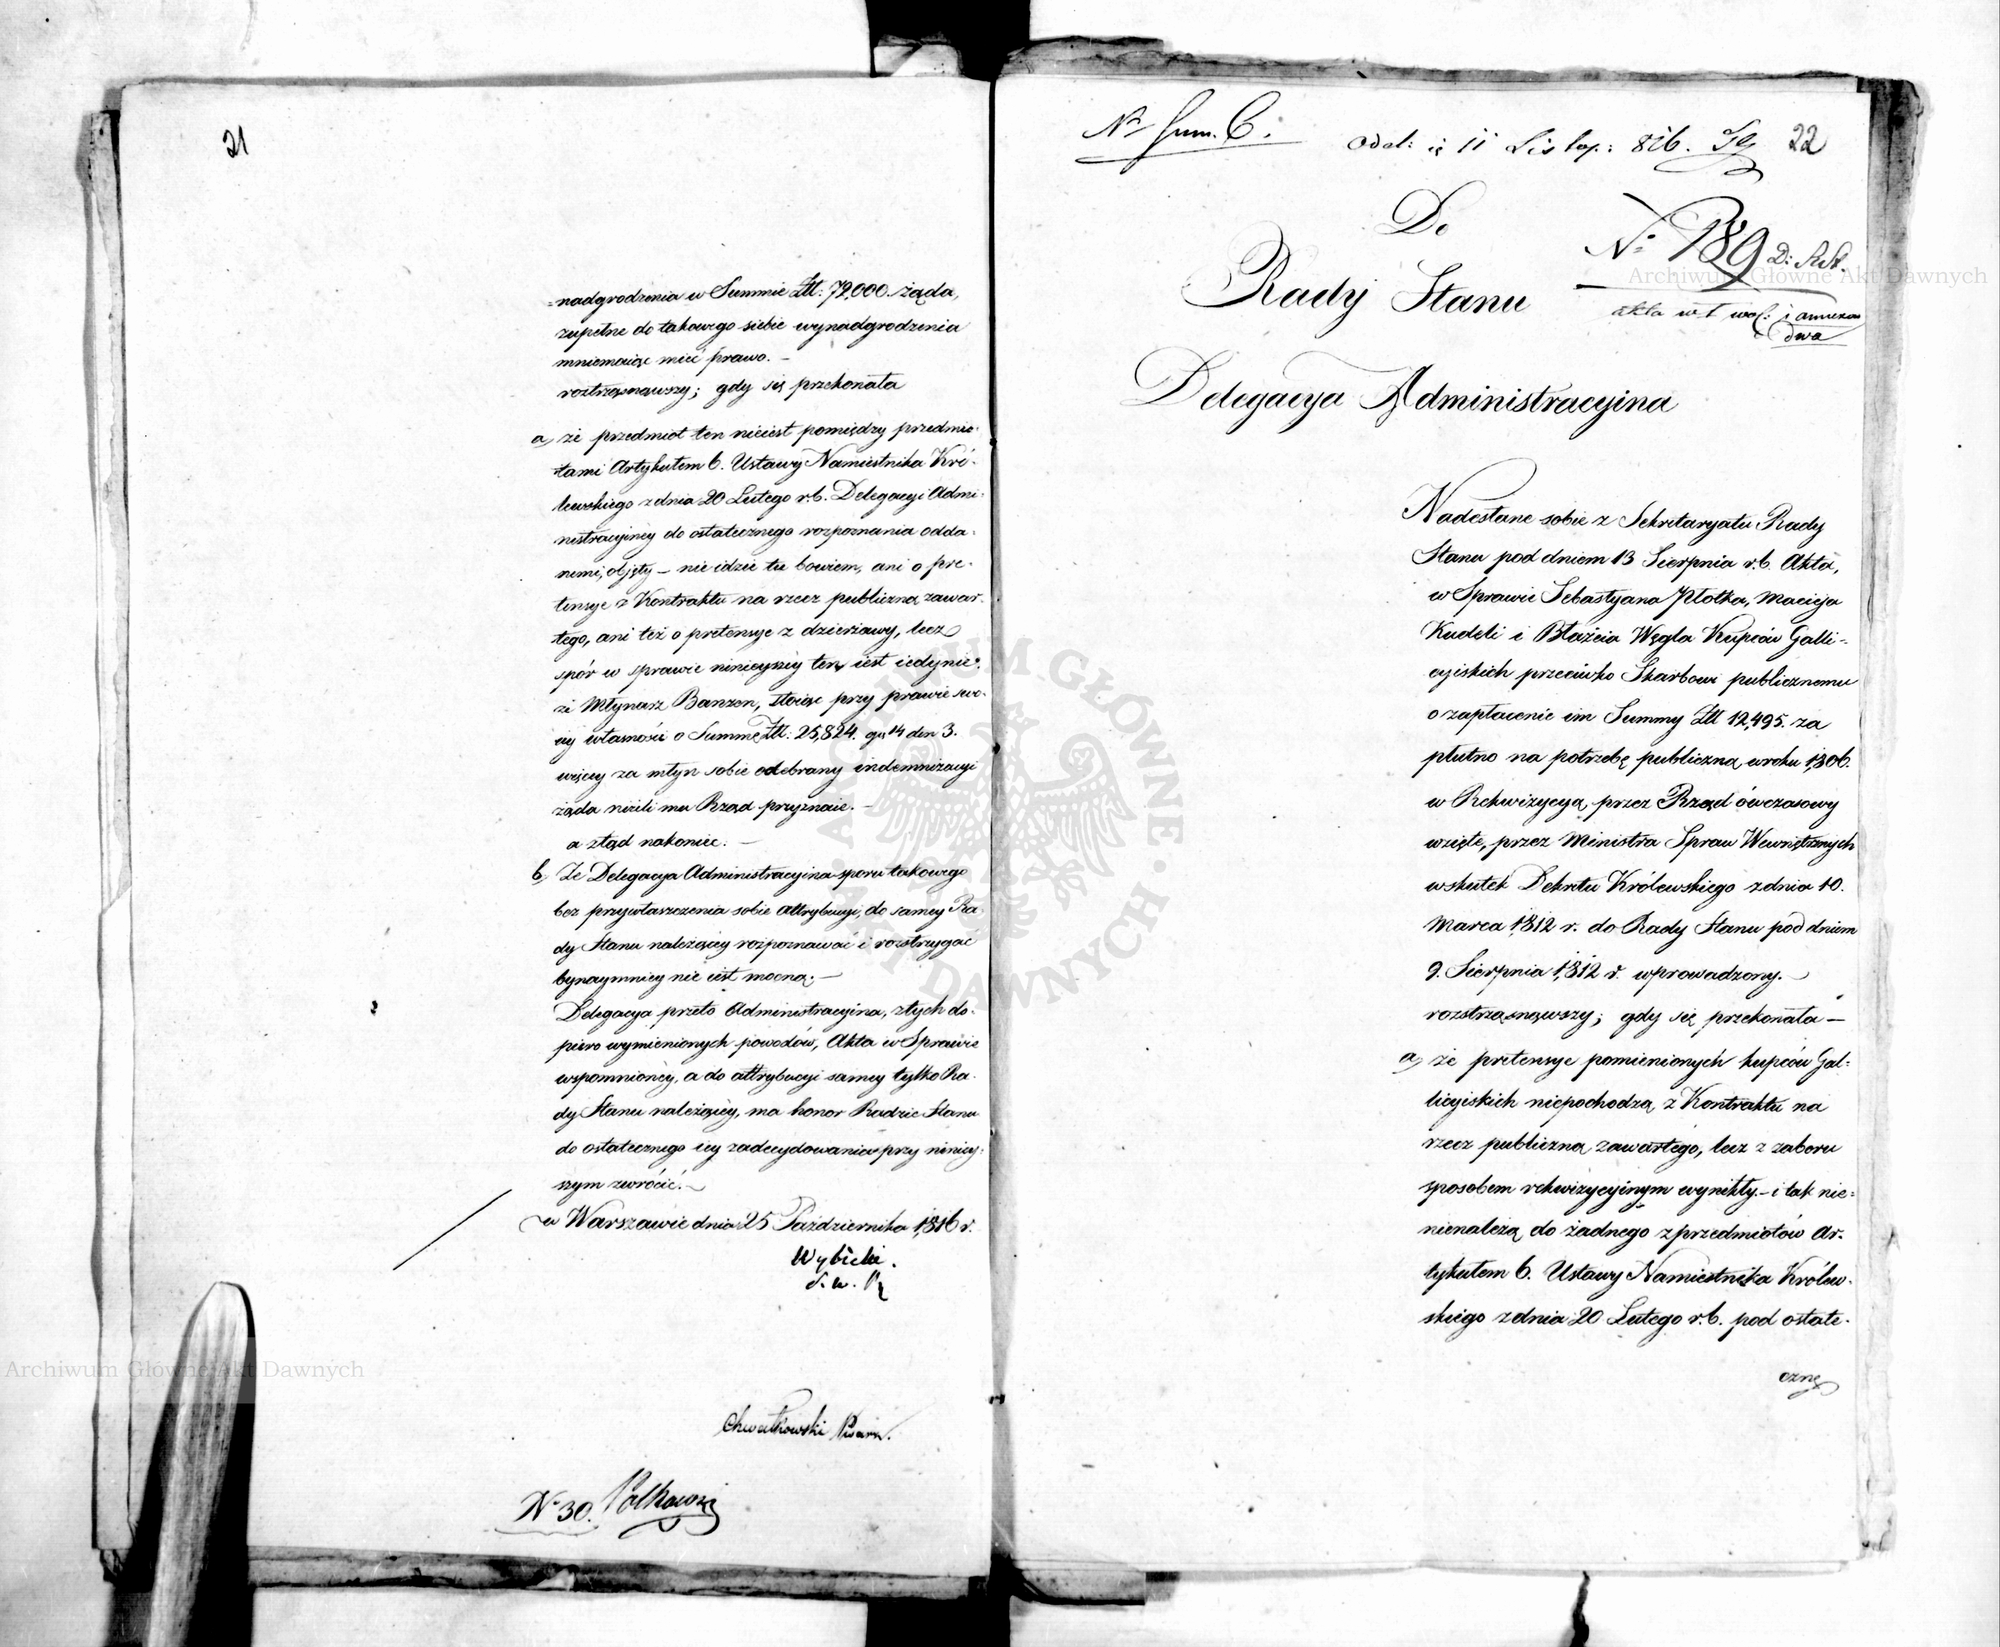 21
nadgrodzenia w Summie Zll: 72,000. żąda,
zupełne do takowego siebie wynadgrodzenia
mniemaiąc mieć prawo. —
roztrząsnąwszy; gdy się przekonała
a, że przedmiot ten nieiest pomiędzy przedmio-
tami Artykułem 6. Ustawy Namiestnika Kró-
lewskiego z dnia 20 Lutego r.b. Delegacyi Admi-
nistracyiney do ostatecznego rozpoznania odda-
nemi, objęty — nie idzie tu bowiem, ani o pre-
tensye z Kontraktu na rzecz publiczną zawar-
tego, ani też o pretensye z dzierżawy, lecz
spór w sprawie ninieyszey ten iest iedynie,
że Młynarz Banzen, stoiąc przy prawie swo-
iey własności o Summę Zll: 25,824. gr. 14 den 3.
więcey za młyn sobie odebrany indemnizacyi
żąda niżili mu Rząd przyznaie. —
a ztąd nakoniec. —
b, Że Delegacya Administracyina sporu takowego
bez przywłaszczenia sobie attrybucyi, do samey Ra-
dy Stanu należącey rozpoznawać i rozstrzygać
bynaymniey nie iest mocną; —
Delegacya przeto Administracyina, z tych do-
piero wymienionych powodów, Akta w Sprawie
wspomnioney, a do attrybucyi samey tylko Ra-
dy Stanu należącey, ma honor Radzie Stanu
do ostatecznego iey zadecydowania przy niniey-
szym zwrócić. —
w Warszawie dnia 25 Października 1816 r.
Wybicki.
S. W. P.
Chwałkowski Pisarz.
No 30.
22
odeb: d. 11 Listop: 816.
Do
No 789 D: R.St.
Rady Stanu
akta w 1 wol: i annexow
dwa
Delegacya Administracyina
Nadesłane sobie z Sekretaryatu Rady
Stanu pod dniem 13 Sierpnia r.b. Akta,
w Sprawie Sebastyana Płotka, Macieja
Kudeli i Błażeia Węgla Kupców Galli-
cyiskich przeciwko Skarbowi publicznemu
o zapłacenie im Summy Zll 12,495. za
płutno na potrzebę publiczną w roku 1806.
w Rekwizycyą przez Rząd ówczasowy
wzięte, przez Ministra Spraw Wewnętrznych
wskutek Dekretu Królewskiego z dnia 10.
Marca 1812 r. do Rady Stanu pod dniem
9. Sierpnia 1812 r. wprowadzony. —
rozstrząsnąwszy; gdy się przekonała —
a, że pretensye pomienionych kupców Gal-
licyiskich niepochodzą z Kontraktu na
rzecz publiczną zawartego, lecz z zaboru
sposobem rekwizycyinym wynikły — i tak nie-
nienależą do żadnego z przedmiotów Ar-
tykułem 6. Ustawy Namiestnika Królew-
skiego z dnia 20 Lutego r.b. pod ostate-
czne
Archiwum Główne Akt Dawnych
Archiwum Główne Akt Dawnych